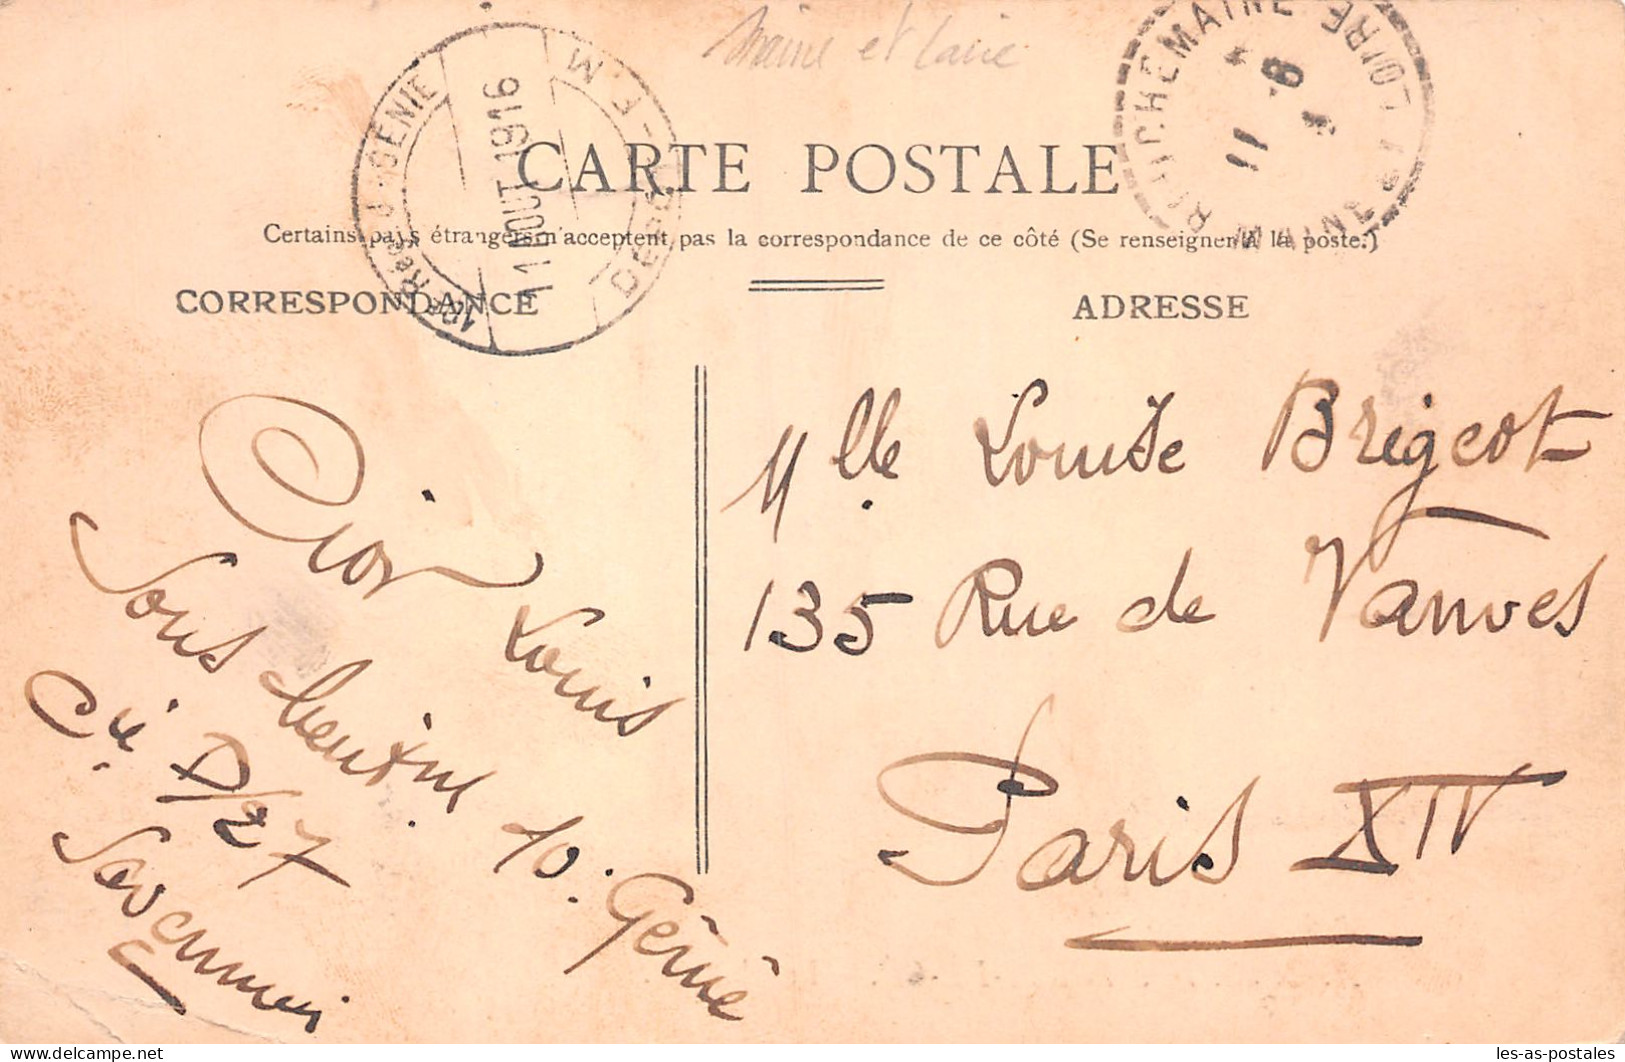 Maine et Loire
1ER RÉG. DU GÉNIE
11 AOUT 1916
F.M.
DEPÔT
BOUCHEMAINE
11 -8
MAINE-&-LOIRE
CARTE POSTALE
Certains pays étrangers n'acceptent pas la correspondance de ce côté (Se renseigner à la poste.)
CORRESPONDANCE
ADRESSE
Mlle Louise Brigeot
135 Rue de Vanves
Paris XIV
Louis
Cie D/27
10. Génie
les-as-postales
les-as-postales.com